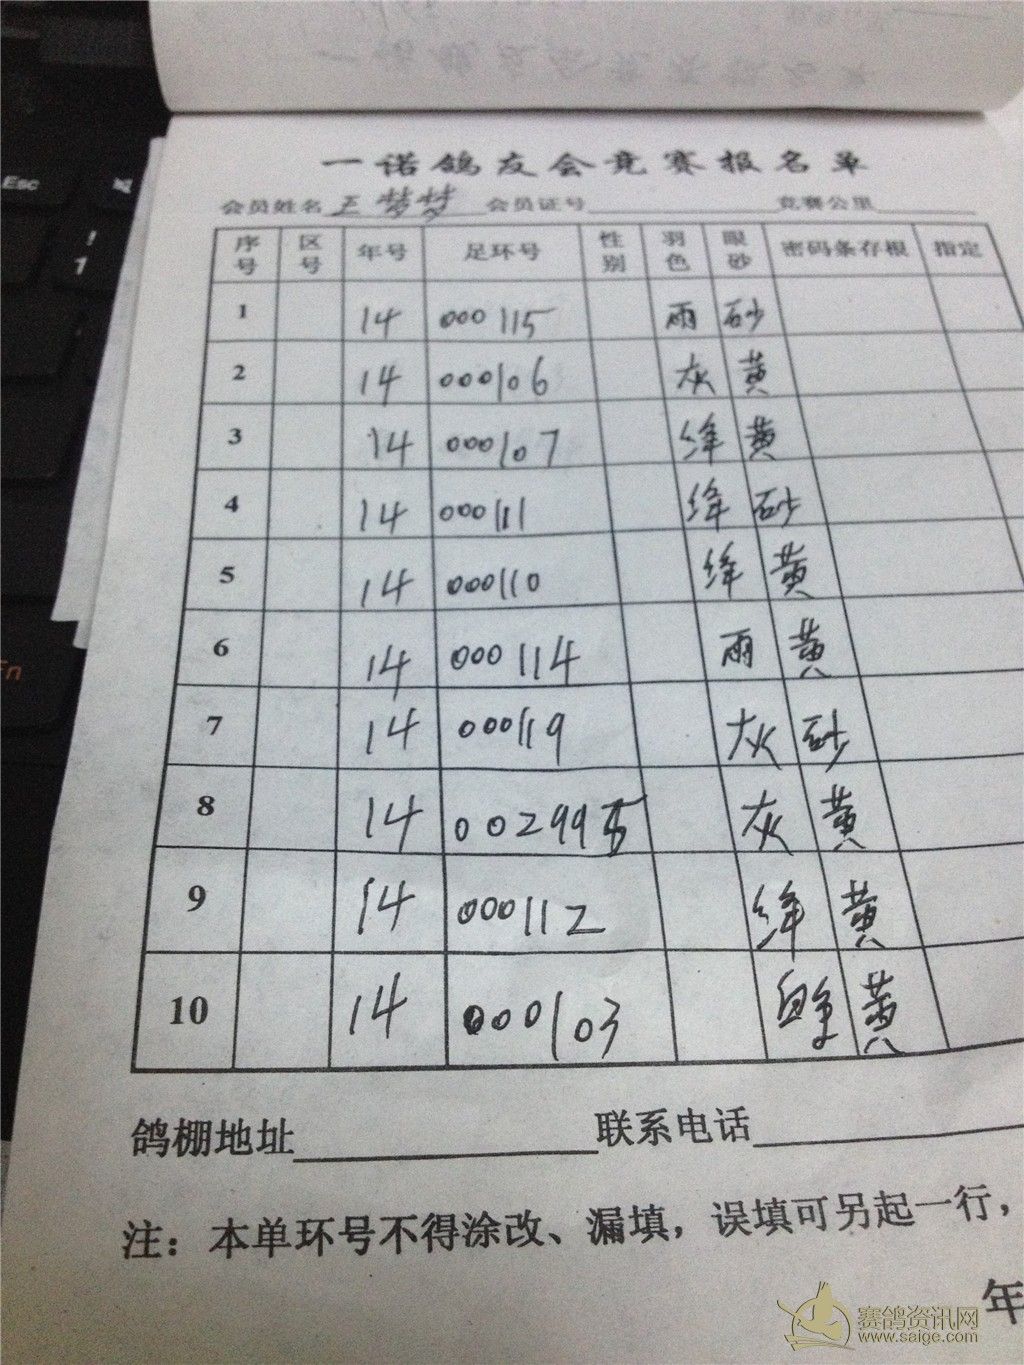 一诺鸽友会竞赛报名单
会员姓名 王梦梦 会员证号 竞赛公里
序号 区号 年号 足环号 性别 羽色 眼砂 密码条存根 指定
1 14 000115 雨 砂
2 14 000106 灰 黄
3 14 000107 绛 黄
4 14 000111 绛 砂
5 14 000110 绛 黄
6 14 000114 雨 黄
7 14 000119 灰 砂
8 14 002995 灰 黄
9 14 000112 绛 黄
10 14 000103 黄
鸽棚地址 联系电话
注：本单环号不得涂改、漏填，误填可另起一行，
年
赛鸽资讯网
www.saige.com
Esc
!
1
Fn